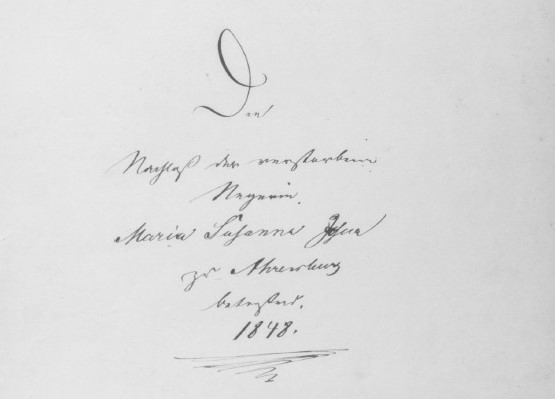 Den
Nachlaß der verstorbenen
Negerin
Maria Susanna
zu Ahrensburg
betreffend.
1848.